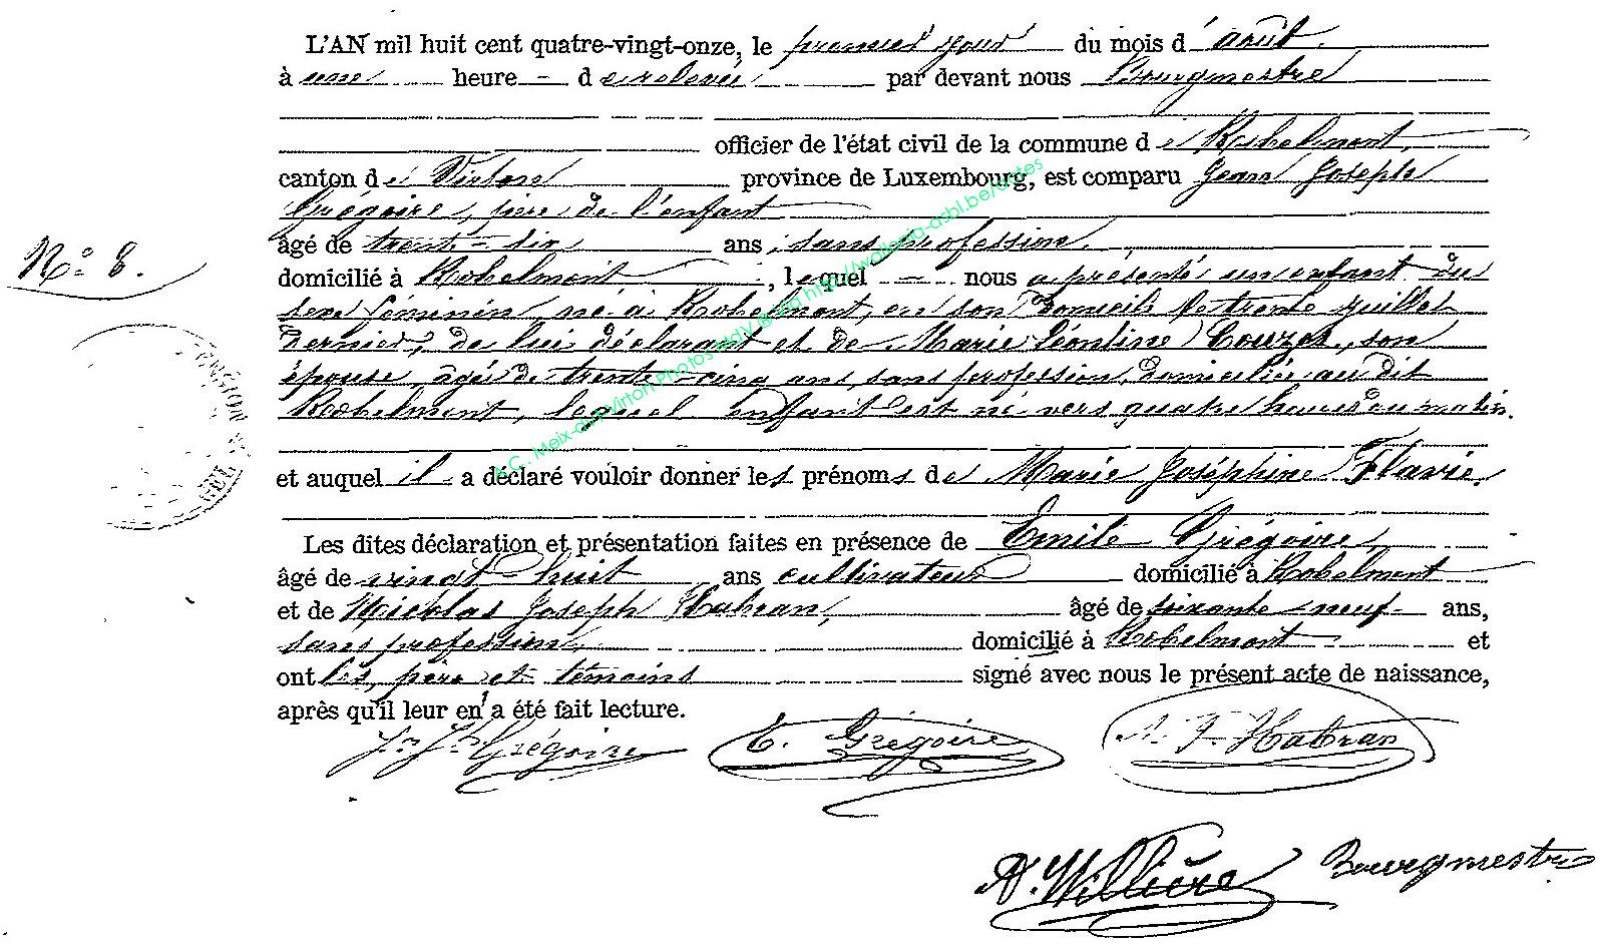 L'AN mil huit cent quatre-vingt-onze, le premier jour du mois d'août.
à une heure – de relevée par devant nous Bourgmestre
officier de l'état civil de la commune de Robelmont,
canton de Virton province de Luxembourg, est comparu Jean Joseph
Grégoire, père de l'enfant
âgé de trente-six ans, sans profession,
N° 8.
domicilié à Robelmont, lequel nous a présenté un enfant du
sexe féminin, né à Robelmont, en son domicile le trente juillet
dernier, de lui déclarant et de Marie Léontine Couzet, son
épouse, âgée de trente-cinq ans, sans profession, domiciliée au dit
Robelmont, lequel enfant est né vers quatre heures du matin.
et auquel il a déclaré vouloir donner les prénoms de Marie Joséphine Flavie.
Les dites déclaration et présentation faites en présence de Emile Grégoire,
âgé de vingt-huit ans cultivateur domicilié à Robelmont
et de Nicolas Joseph Habran, âgé de soixante-neuf ans,
sans profession, domicilié à Robelmont et
ont les, père et témoins signé avec nous le présent acte de naissance,
après qu'il leur en a été fait lecture.
Jn Jh Grégoire E. Grégoire N. J. Habran
D. Willière Bourgmestre
A.C. Meix-dvt-Virton Photos MdV & Cg http://wallonia-asbl.be/actes